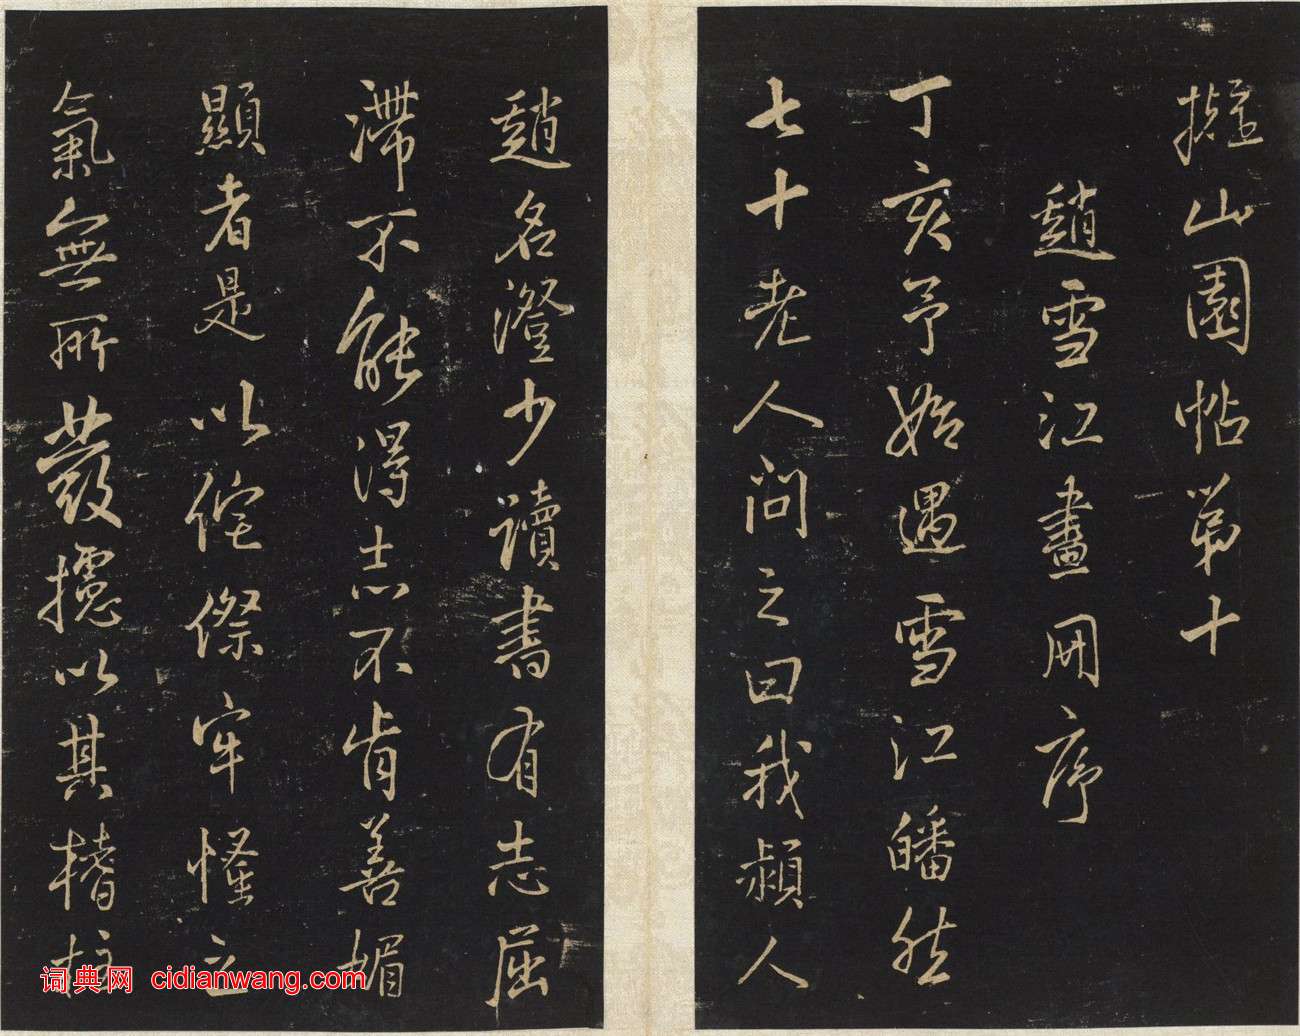 擬山園帖第十
趙雪江畫冊序
丁亥予始遇雪江皤然
七十老人問之曰我潁人
趙名澄少讀書有志屈
滯不能得志不肯善媚
顯者是以侘傺牢慅之
氣無所發攄以其榰柱
词典网 cidianwang.com